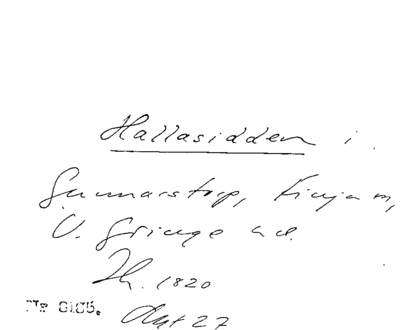 Hallasidden i
Gunnarstorp, Finja m,
V. Göinge hd.
Th. 1820
Nr 8105.
Aut 27